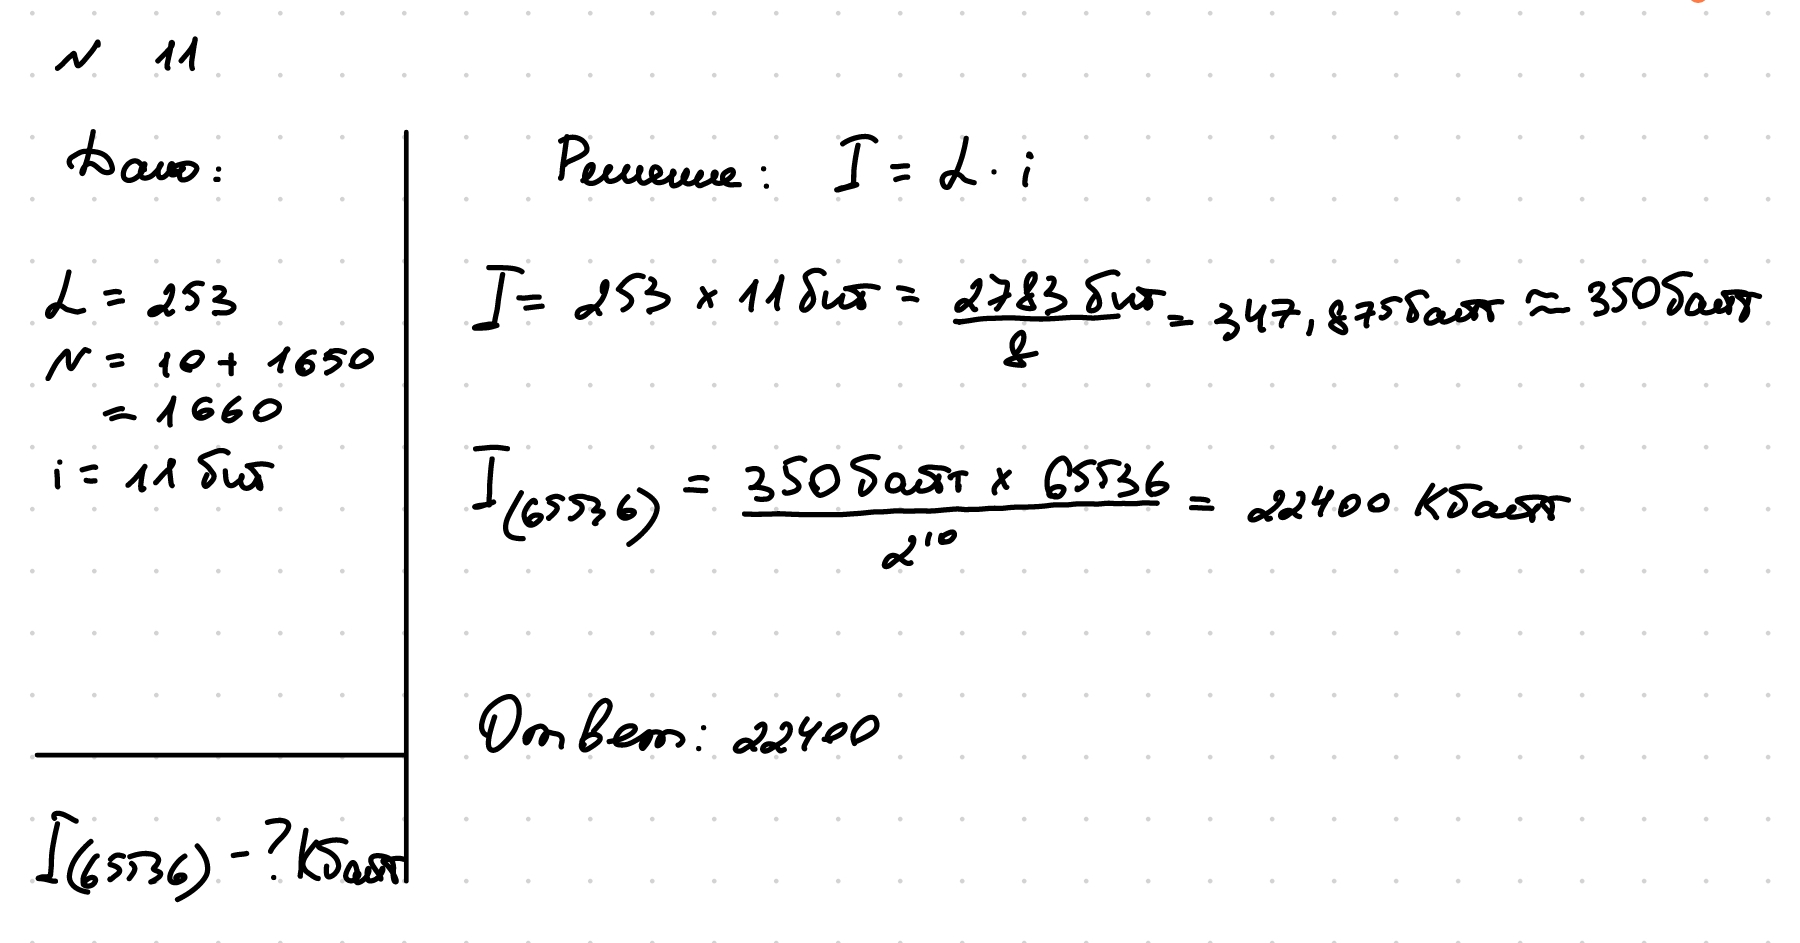 N 11
Дано:
L = 253
N = 10 + 1650
= 1660
i = 11 бит
I(65536) - ? Кбайт
Решение: I = L · i
I = 253 × 11 бит = 2783 бит / 8 = 347,875 байт ≈ 350 байт
I(65536) = 350 байт × 65536 / 2¹⁰ = 22400 Кбайт
Ответ: 22400